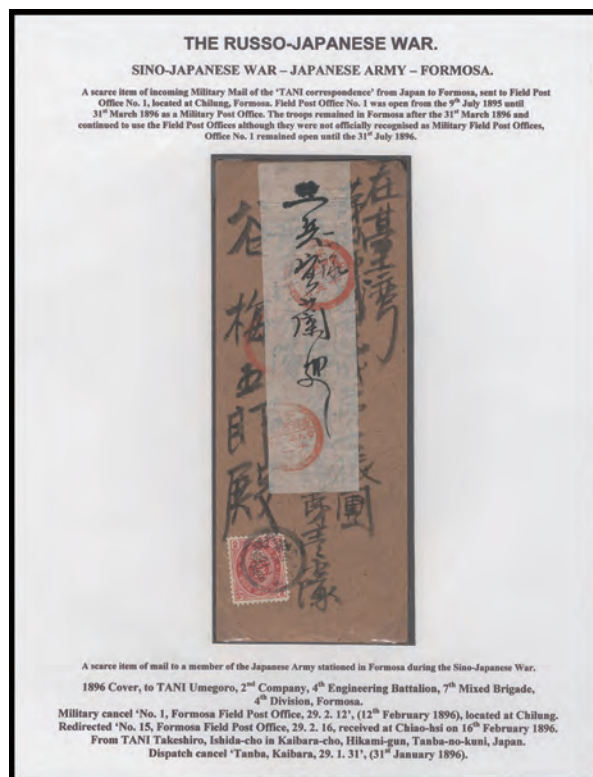 THE RUSSO-JAPANESE WAR.
SINO-JAPANESE WAR – JAPANESE ARMY – FORMOSA.
A scarce item of incoming Military Mail of the ‘TANI correspondence’ from Japan to Formosa, sent to Field Post
Office No. 1, located at Chilung, Formosa. Field Post Office No. 1 was open from the 9th July 1895 until
31st March 1896 as a Military Post Office. The troops remained in Formosa after the 31st March 1896 and
continued to use the Field Post Offices although they were not officially recognised as Military Field Post Offices,
Office No. 1 remained open until the 31st July 1896.
在臺灣
兵宜蘭
谷梅五郎殿
A scarce item of mail to a member of the Japanese Army stationed in Formosa during the Sino-Japanese War.
1896 Cover, to TANI Umegoro, 2nd Company, 4th Engineering Battalion, 7th Mixed Brigade,
4th Division, Formosa.
Military cancel ‘No. 1, Formosa Field Post Office, 29. 2. 12’, (12th February 1896), located at Chilung.
Redirected ‘No. 15, Formosa Field Post Office, 29. 2. 16, received at Chiao-hsi on 16th February 1896.
From TANI Takeshiro, Ishida-cho in Kaibara-cho, Hikami-gun, Tanba-no-kuni, Japan.
Dispatch cancel ‘Tanba, Kaibara, 29. 1. 31’, (31st January 1896).